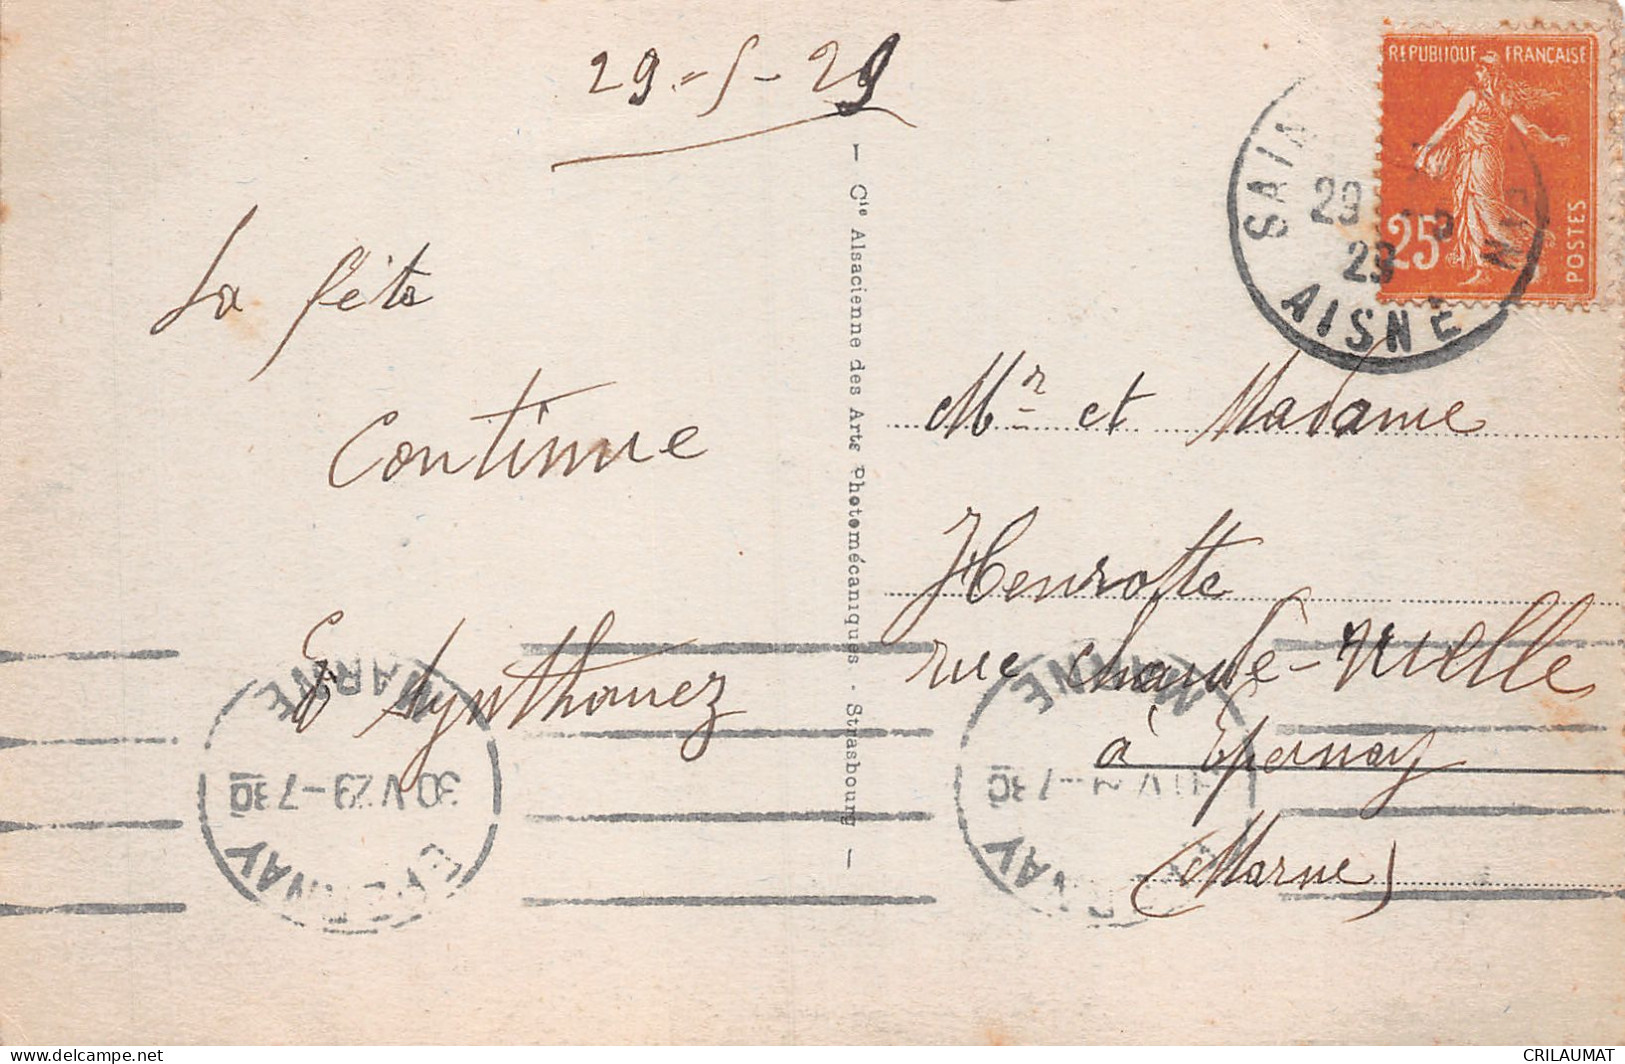 29-5-29
La fête
Continue
Cie Alsacienne des Arts Photomécaniques - Strasbourg
REPUBLIQUE FRANÇAISE
25
POSTES
29
29
AISNE
Mr et Madame
Henrotte
rue chaude-ruelle
à Epernay
(Marne)
MARNE
30 V 29 - 7 30
EPERNAY
MARNE
7 30
www.delcampe.net
CRILAUMAT